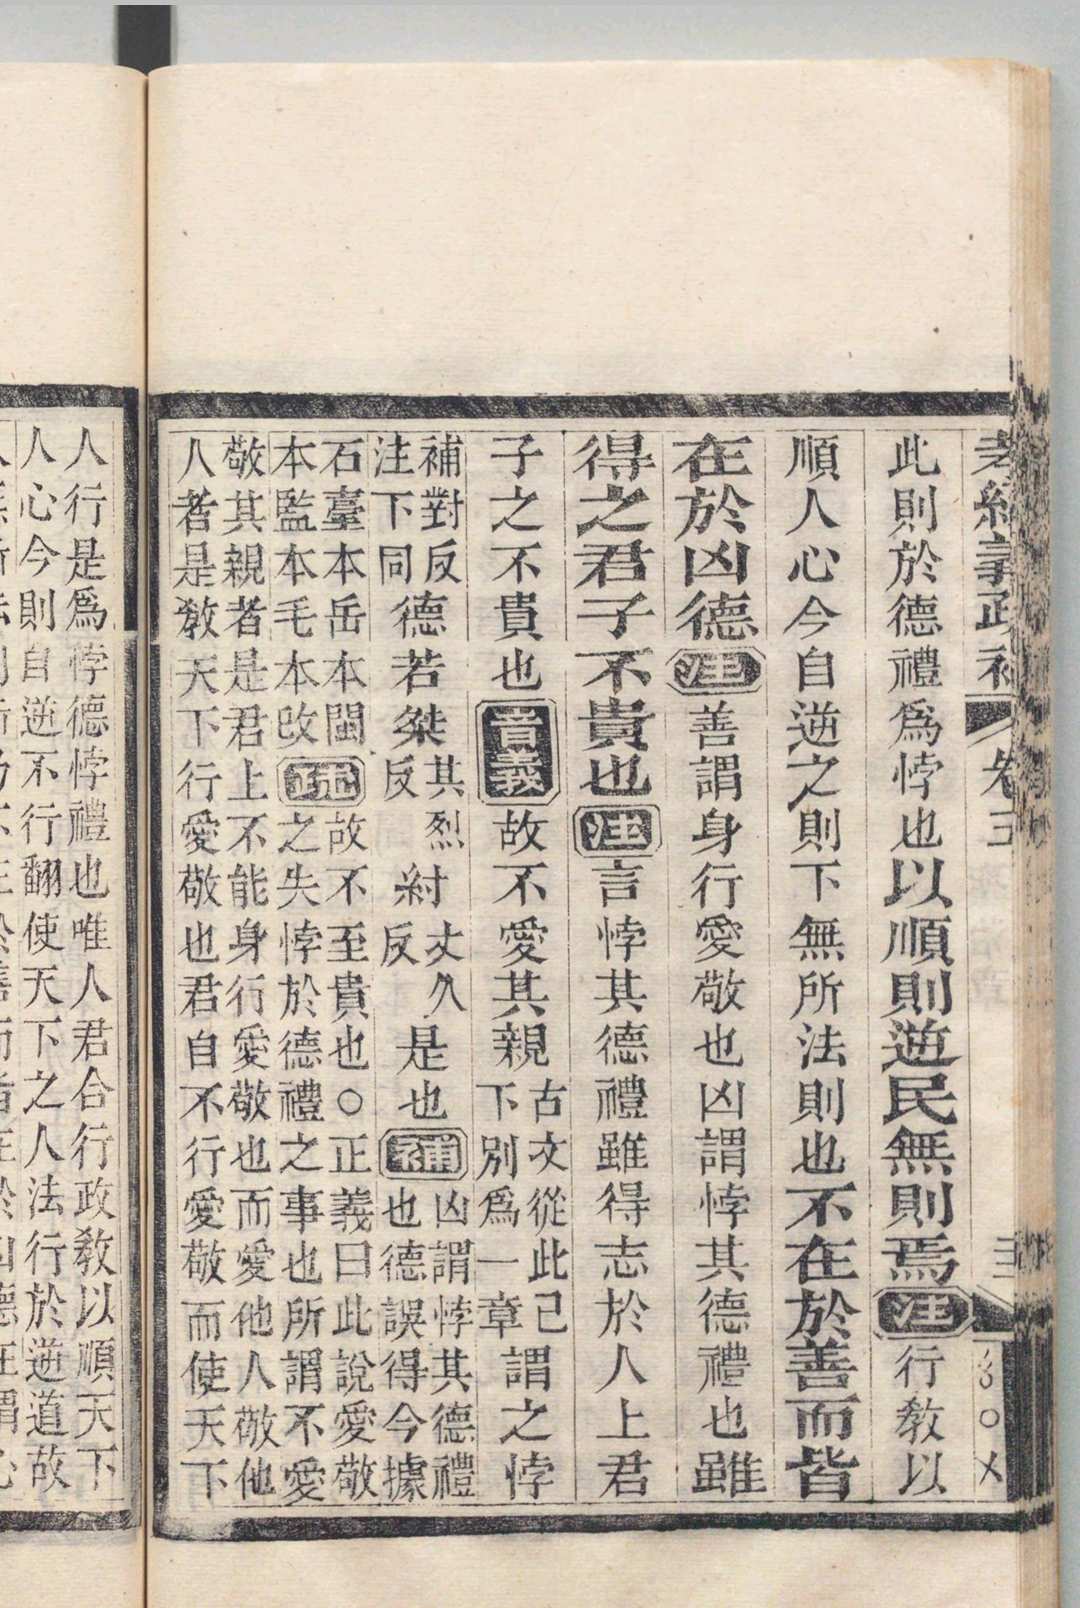 孝經義疏補 卷三
此則於德禮爲悖也以順則逆民無則焉注行教以
順人心今自逆之則下無所法則也不在於善而皆
在於凶德注善謂身行愛敬也凶謂悖其德禮也雖
得之君子不貴也注言悖其德禮雖得志於人上君
子之不貴也音義故不愛其親古文從此己下別爲一章謂之悖
補對反注下同德若桀其烈反紂丈久反是也補凶謂悖其德禮也德誤得今據
石臺本岳本閩本監本毛本改疏故不至貴也○正義曰此說愛敬
之失悖於德禮之事也所謂不愛
敬其親者是君上不能身行愛敬也而愛他人敬他
人者是教天下行愛敬也君自不行愛敬而使天下
人行是爲悖德悖禮也唯人君合行政教以順天下
人心今則自逆不行翻使天下之人法行於逆道故